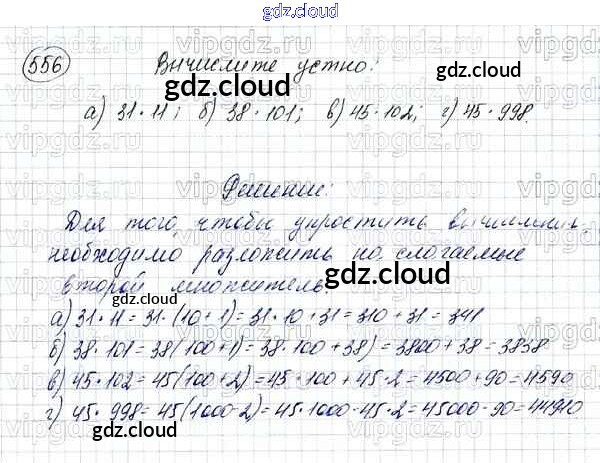 gdz.cloud
556 Вычислите устно:
gdz.cloud
а) 31·11; б) 38·101; в) 45·102; г) 45·998.
Решение:
Для того, чтобы упростить вычисления,
необходимо разложить на слагаемые
второй множитель.
gdz.cloud
а) 31·11 = 31·(10+1) = 31·10+31 = 310+31 = 341
б) 38·101 = 38(100+1) = 38·100+38) = 3800+38 = 3838
в) 45·102 = 45(100+2) = 45·100+45·2 = 4500+90 = 4590
г) 45·998 = 45(1000-2) = 45·1000-45·2 = 45000-90 = 44910
gdz.cloud
vipgdz.cloud